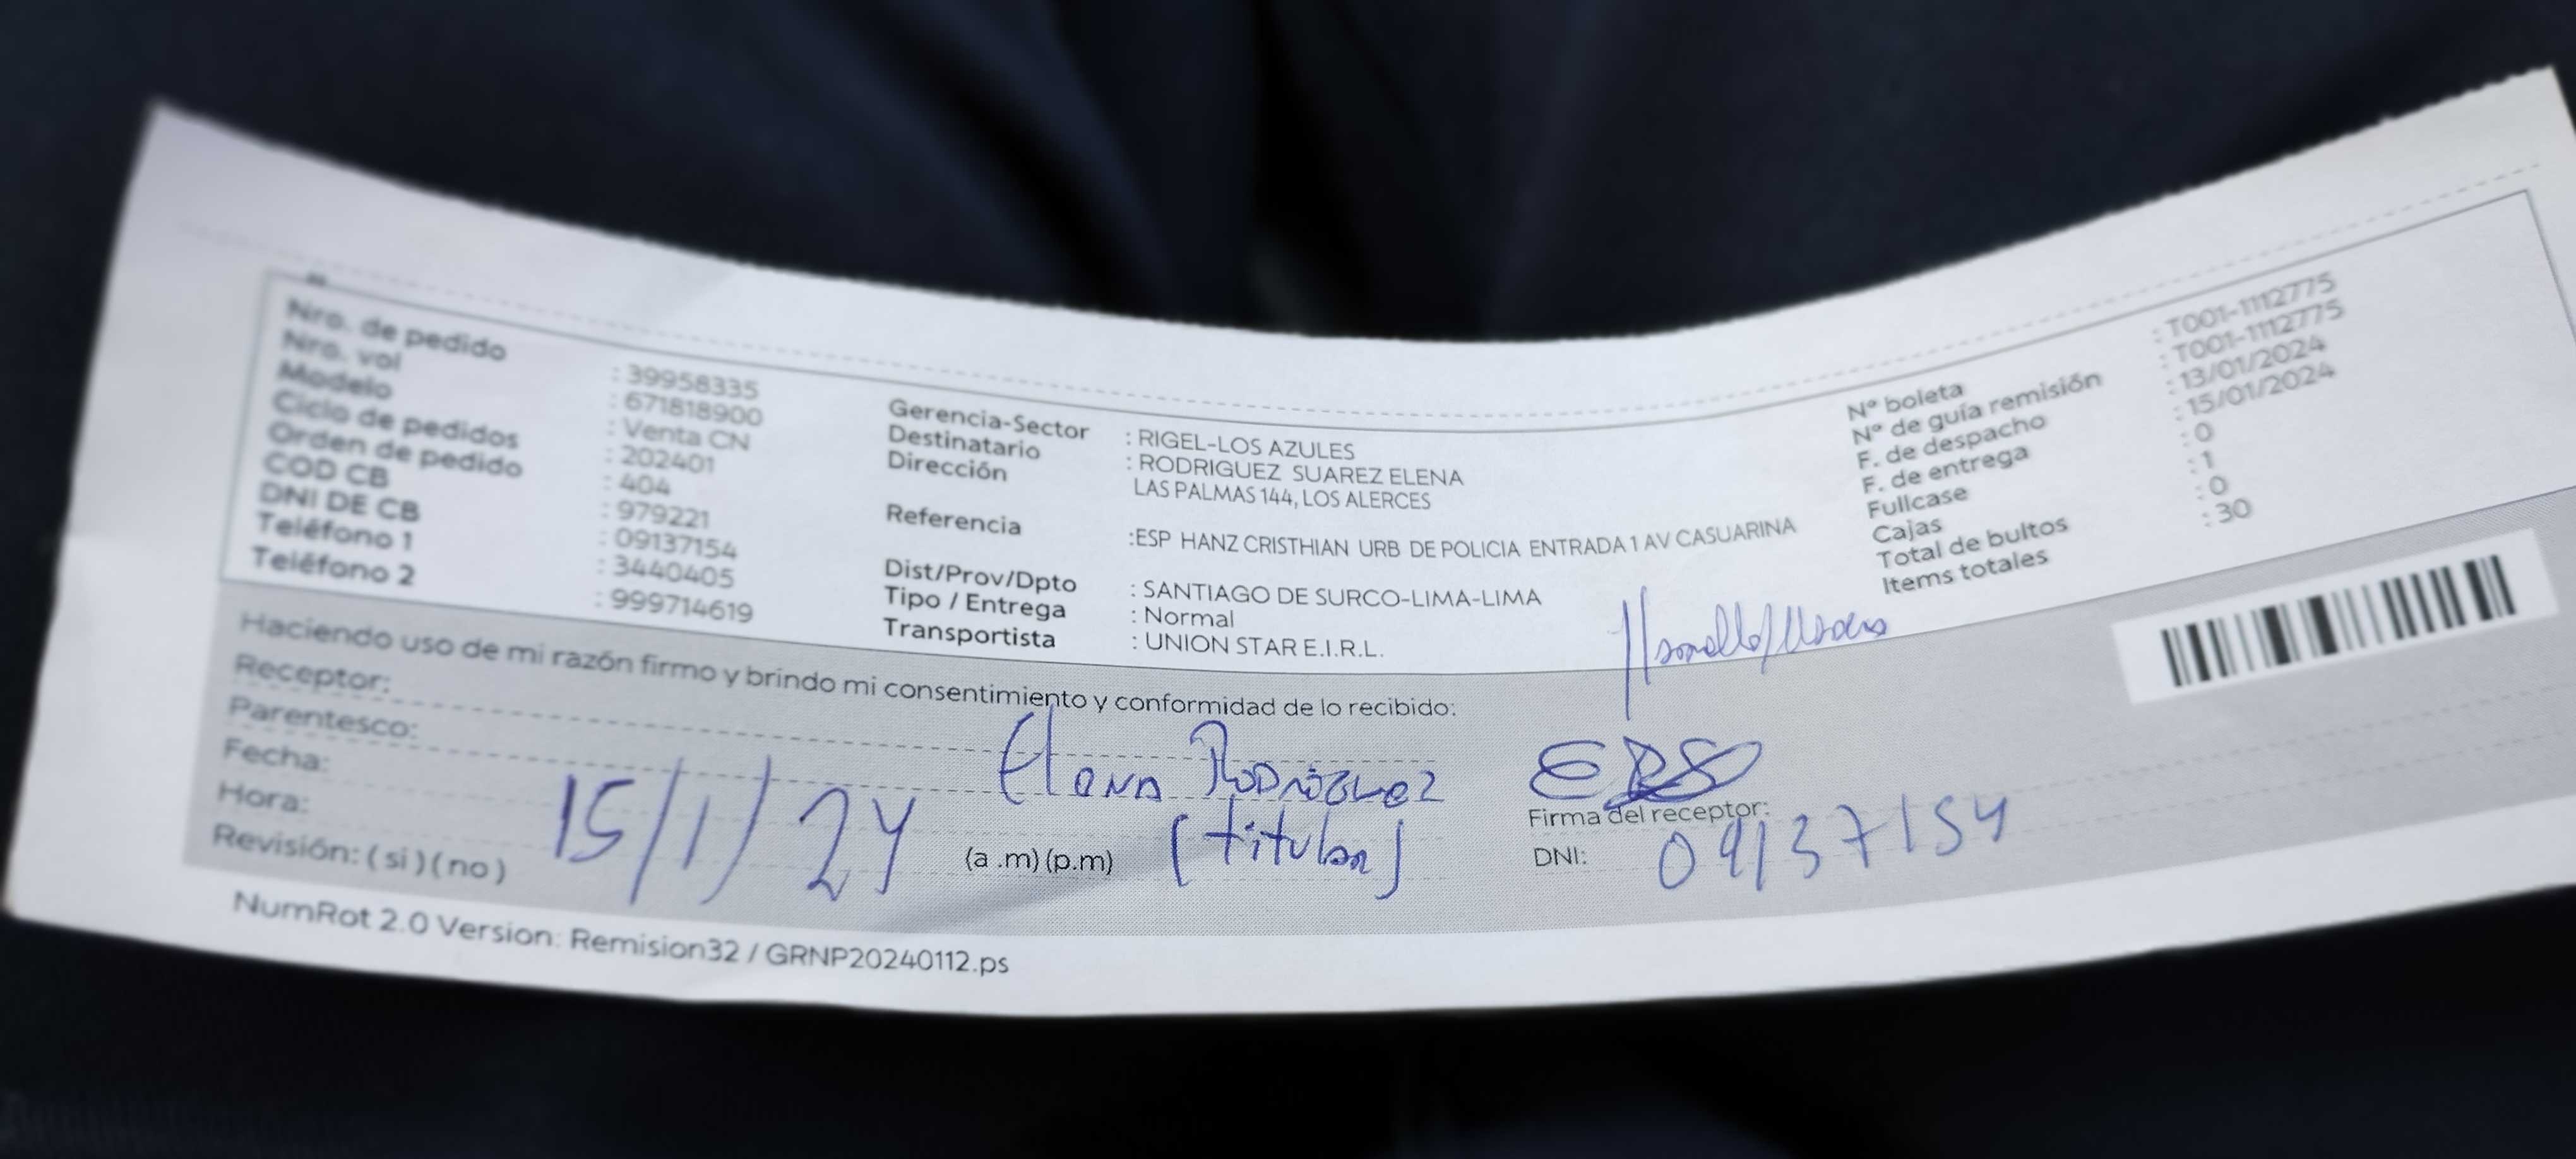 Nro. de pedido : 39958335
Nro. vol : 671818900
Modelo : Venta CN
Ciclo de pedidos : 202401
Orden de pedido : 404
COD CB : 979221
DNI DE CB : 09137154
Teléfono 1 : 3440405
Teléfono 2 : 999714619
Gerencia-Sector : RIGEL-LOS AZULES
Destinatario : RODRIGUEZ SUAREZ ELENA
Dirección LAS PALMAS 144, LOS ALERCES
Referencia :ESP HANZ CRISTHIAN URB DE POLICIA ENTRADA 1 AV CASUARINA
Dist/Prov/Dpto : SANTIAGO DE SURCO-LIMA-LIMA
Tipo / Entrega : Normal
Transportista : UNION STAR E.I.R.L.
N° boleta : T001-1112775
N° de guía remisión : T001-1112775
F. de despacho : 13/01/2024
F. de entrega : 15/01/2024
Fullcase : 0
Cajas : 1
Total de bultos : 0
Items totales : 30
Haciendo uso de mi razón firmo y brindo mi consentimiento y conformidad de lo recibido:
Receptor:
Parentesco:
Fecha:
Hora:
Revisión: ( si ) ( no )
15/1/24
(a .m) (p.m)
Elena Rodriguez
(titular)
Firma del receptor:
DNI: 09137154
NumRot 2.0 Version: Remision32 / GRNP20240112.ps